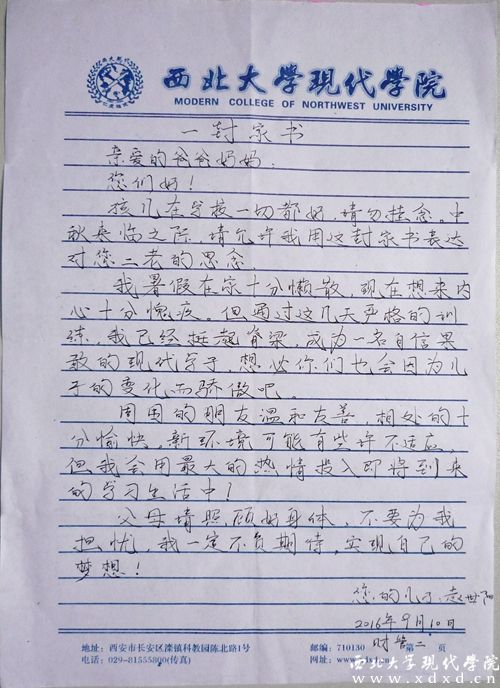 西北大学现代学院
MODERN COLLEGE OF NORTHWEST UNIVERSITY
一封家书
亲爱的爸爸妈妈：
您们好！
孩儿在学校一切都好，请勿挂念。中
秋来临之际，请允许我用这封家书表达
对您二老的思念。
我暑假在家十分懒散，现在想来内
心十分愧疚。但通过这几天严格的训
练，我已经挺起脊梁，成为一名自信果
敢的现代学子，想必你们也会因为儿
子的变化而骄傲吧。
周围的朋友温和友善，相处的十
分愉快，新环境可能有些许不适应，
但我会用最大的热情投入即将到来
的学习生活中！
父母请照顾好身体，不要为我
担忧，我一定不负期待，实现自己的
梦想！
您的儿子：赵世阳
2016年9月10日
财管二
地址：西安市长安区滦镇科教园陈北路1号
邮编：710130
第 页
电话：029-81555800(传真)
网址：
西北大学现代学院
www.xdxd.cn